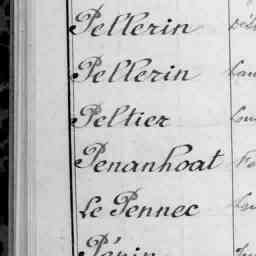 Pellerin
Pellerin
Peltier
Penanhoat
Le Pennec
Pépin